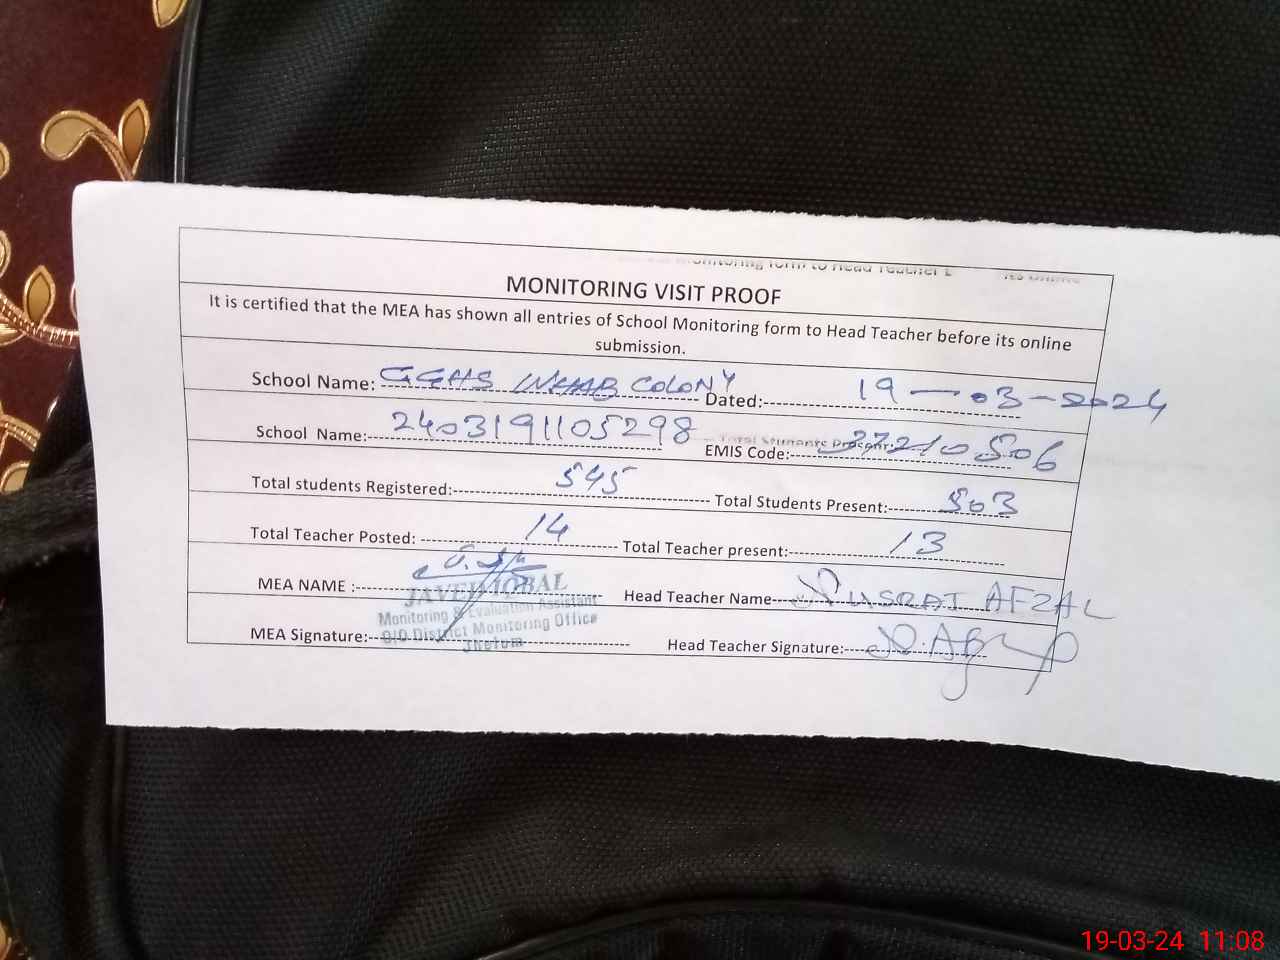 MONITORING VISIT PROOF
It is certified that the MEA has shown all entries of School Monitoring form to Head Teacher before its online
submission.
School Name: GGHS COLONY Dated: 19-03-2024
School Name: 2403191105298 EMIS Code: 37210506
Total students Registered: 545 Total Students Present: 503
Total Teacher Posted: 14 Total Teacher present: 13
MEA NAME : Head Teacher Name NUSRAT AFZAL
JAVED IQBAL
Monitoring & Evaluation Assistant
O/O District Monitoring Office
Jhelum
MEA Signature: Head Teacher Signature:
19-03-24 11:08